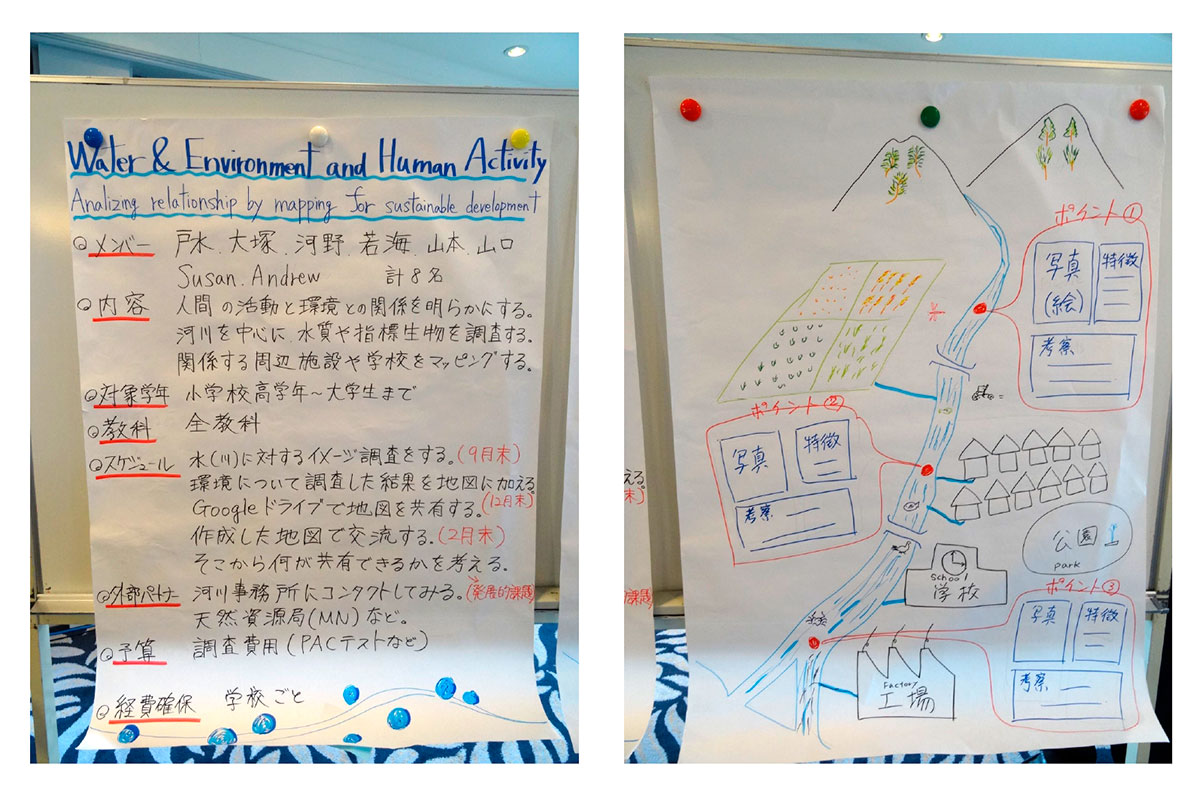 Water & Environment and Human Activity
Analizing relationship by mapping for sustainable development
◎メンバー 戸水、大塚、河野、若海、山本、山口
Susan、Andrew 計8名
◎内容 人間の活動と環境との関係を明らかにする。
河川を中心に、水質や指標生物を調査する。
関係する周辺施設や学校をマッピングする。
◎対象学年 小学校高学年~大学生まで
◎教科 全教科
◎スケジュール 水(川)に対するイメージ調査をする。(9月末)
環境について調査した結果を地図に加える。
Googleドライブで地図を共有する。(12月末)
作成した地図で交流する。(2月末)
そこから何が共有できるかを考える。
(発展的課題)
◎外部パートナー 河川事務所にコンタクトしてみる。
天然資源局(MN)など。
◎予算 調査費用(PACテストなど)
◎経費確保 学校ごと
える。
末)
課題)
ポイント①
写真
(絵)
特徴
考察
ポイント②
写真
特徴
考察
公園
park
School
学校
ポイント③
写真
特徴
考察
Factory
工場